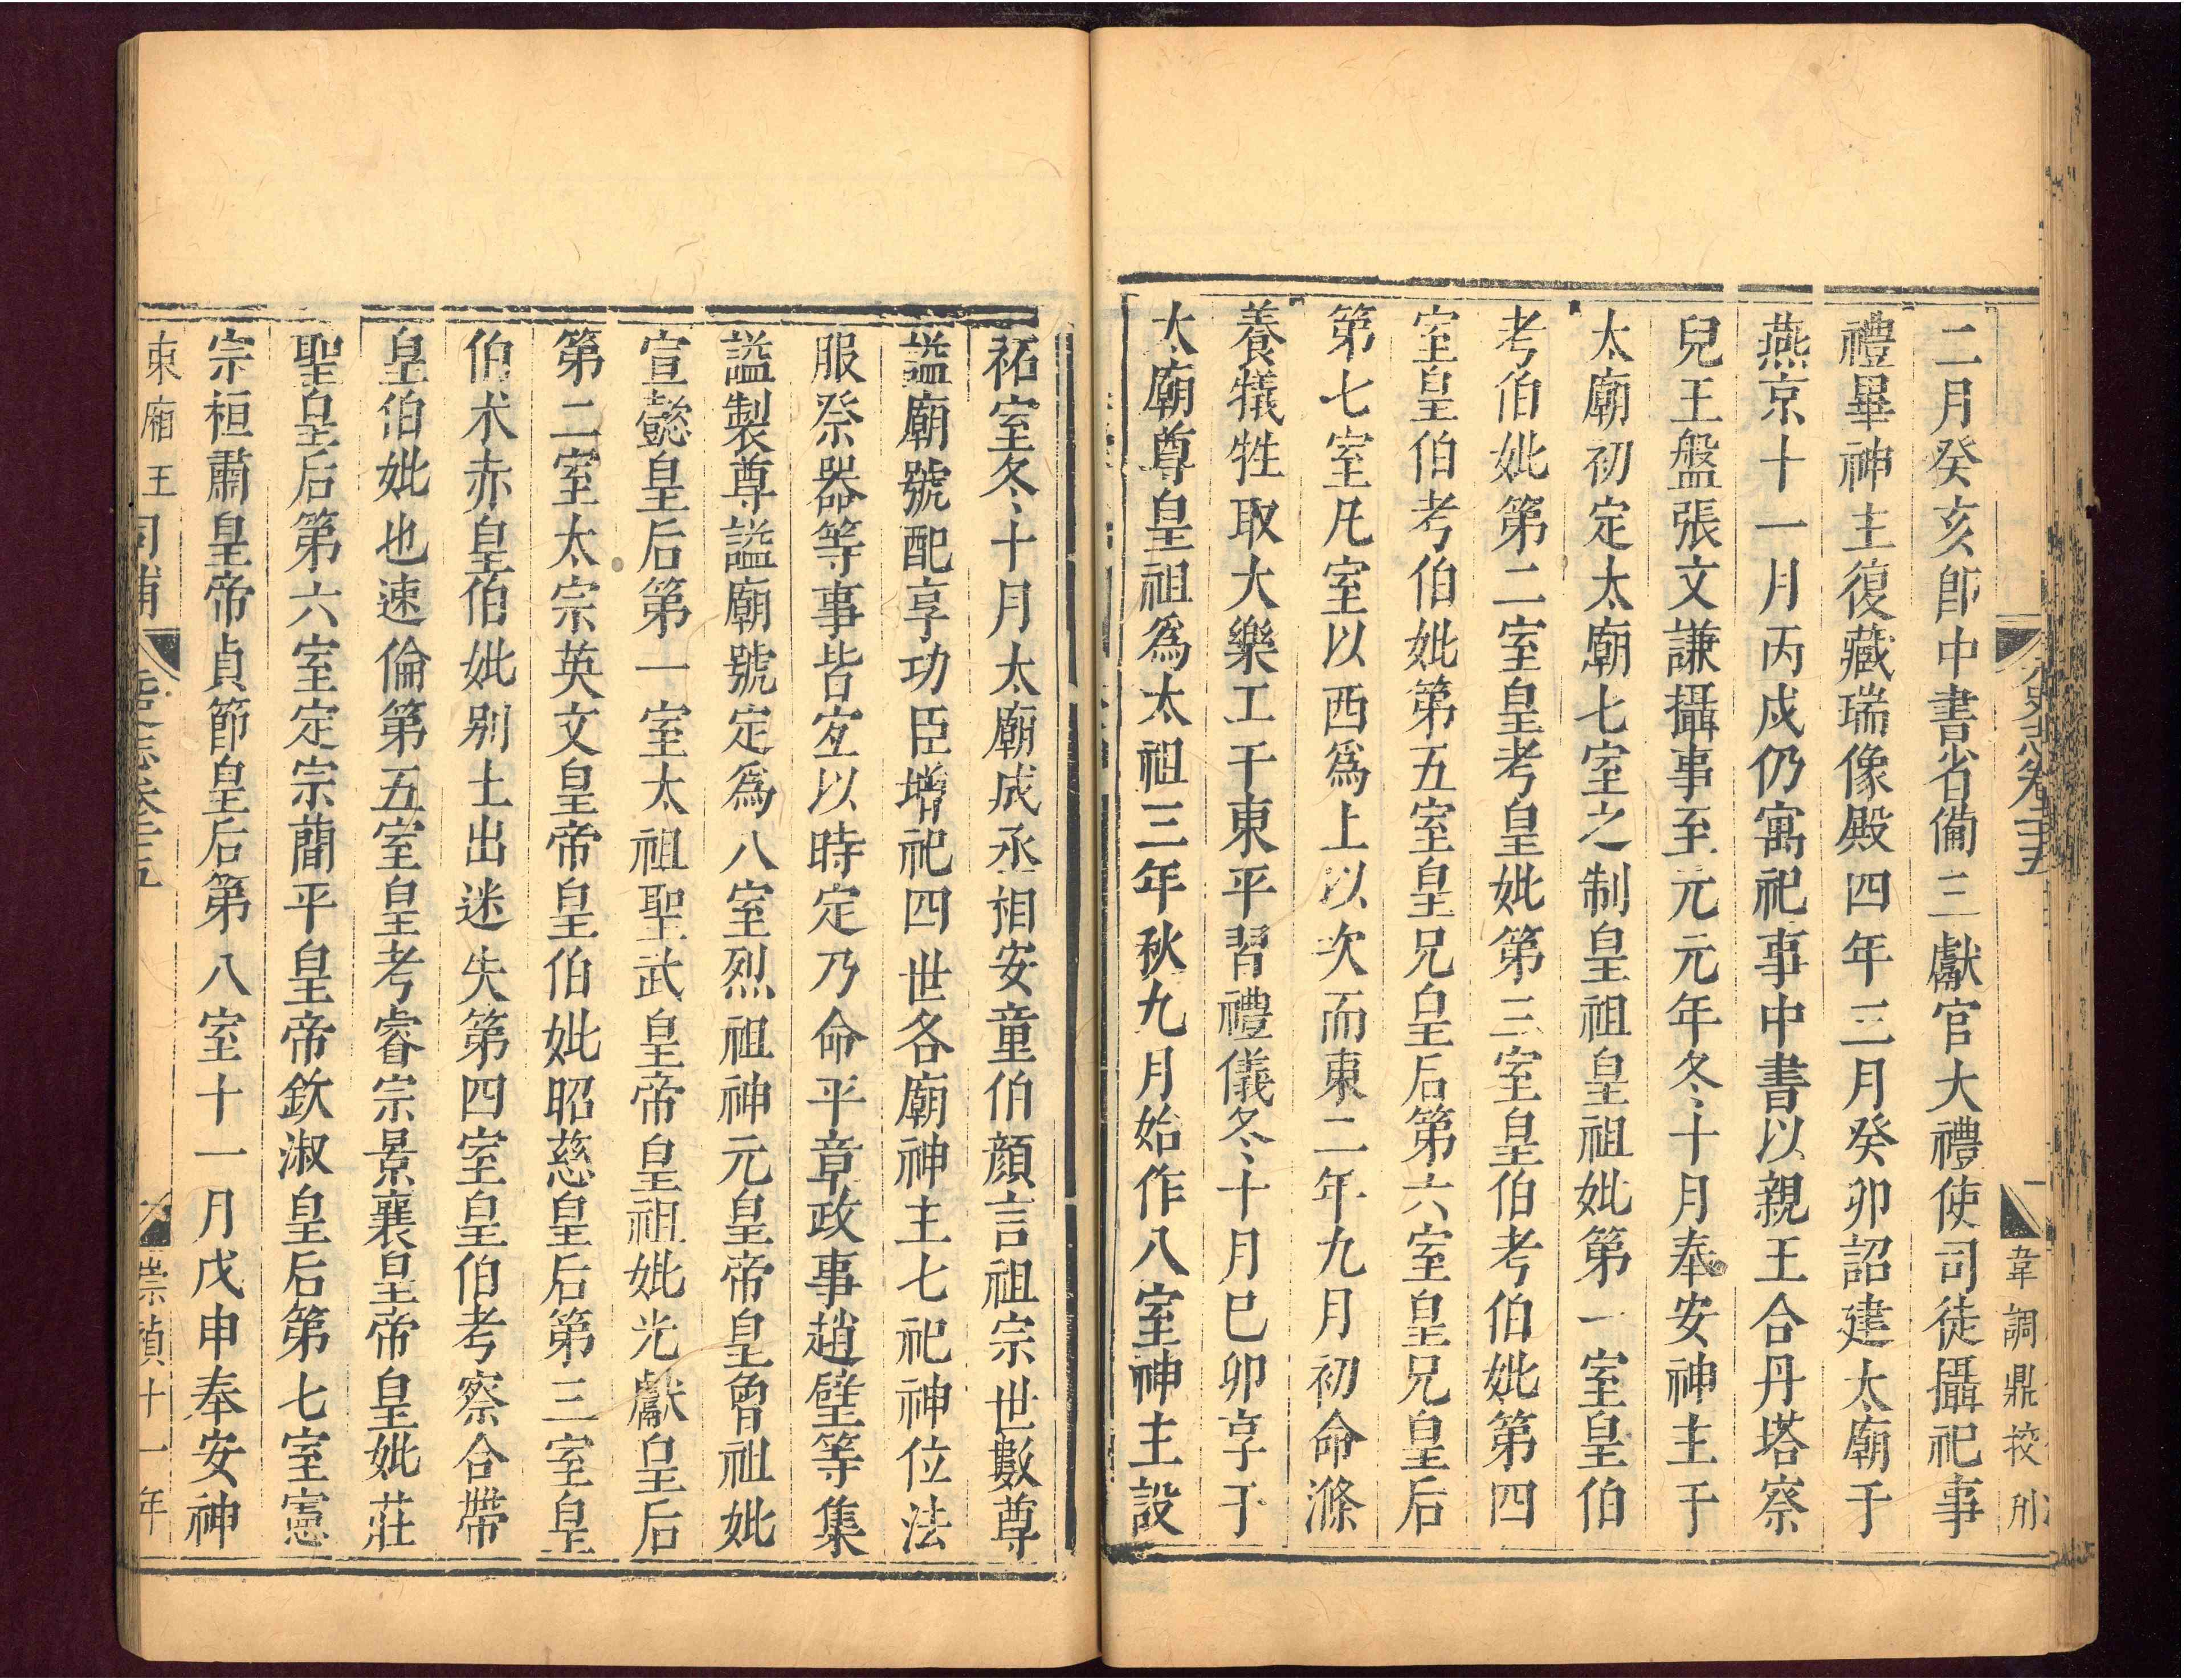 韋調鼎挍刋
二月癸亥即中書省備三獻官大禮使司徒攝祀事
禮畢神主復藏瑞像殿四年三月癸卯詔建太廟于
燕京十一月丙戌仍寓祀事中書以親王合丹塔察
兒王盤張文謙攝事至元元年冬十月奉安神主于
太廟初定太廟七室之制皇祖皇祖妣第一室皇伯
考伯妣第二室皇考皇妣第三室皇伯考伯妣第四
室皇伯考伯妣第五室皇兄皇后第六室皇兄皇后
第七室凡室以西爲上以次而東二年九月初命滌
養犧牲取大樂工于東平習禮儀冬十月巳卯享于
太廟尊皇祖爲太祖三年秋九月始作八室神主設
祏室冬十月太廟成丞相安童伯顔言祖宗世數尊
謚廟號配享功臣增祀四世各廟神主七祀神位法
服祭器等事皆宐以時定乃命平章政事趙璧等集
謚製尊謚廟號定爲八室烈祖神元皇帝皇曾祖妣
宣懿皇后第一室太祖聖武皇帝皇祖妣光獻皇后
第二室太宗英文皇帝皇伯妣昭慈皇后第三室皇
伯术赤皇伯妣别土出迷失第四室皇伯考察合帶
皇伯妣也速倫第五室皇考睿宗景襄皇帝皇妣莊
聖皇后第六室定宗蕳平皇帝欽淑皇后第七室憲
宗桓肅皇帝貞節皇后第八室十一月戊申奉安神
東廂王
崇禎十一年